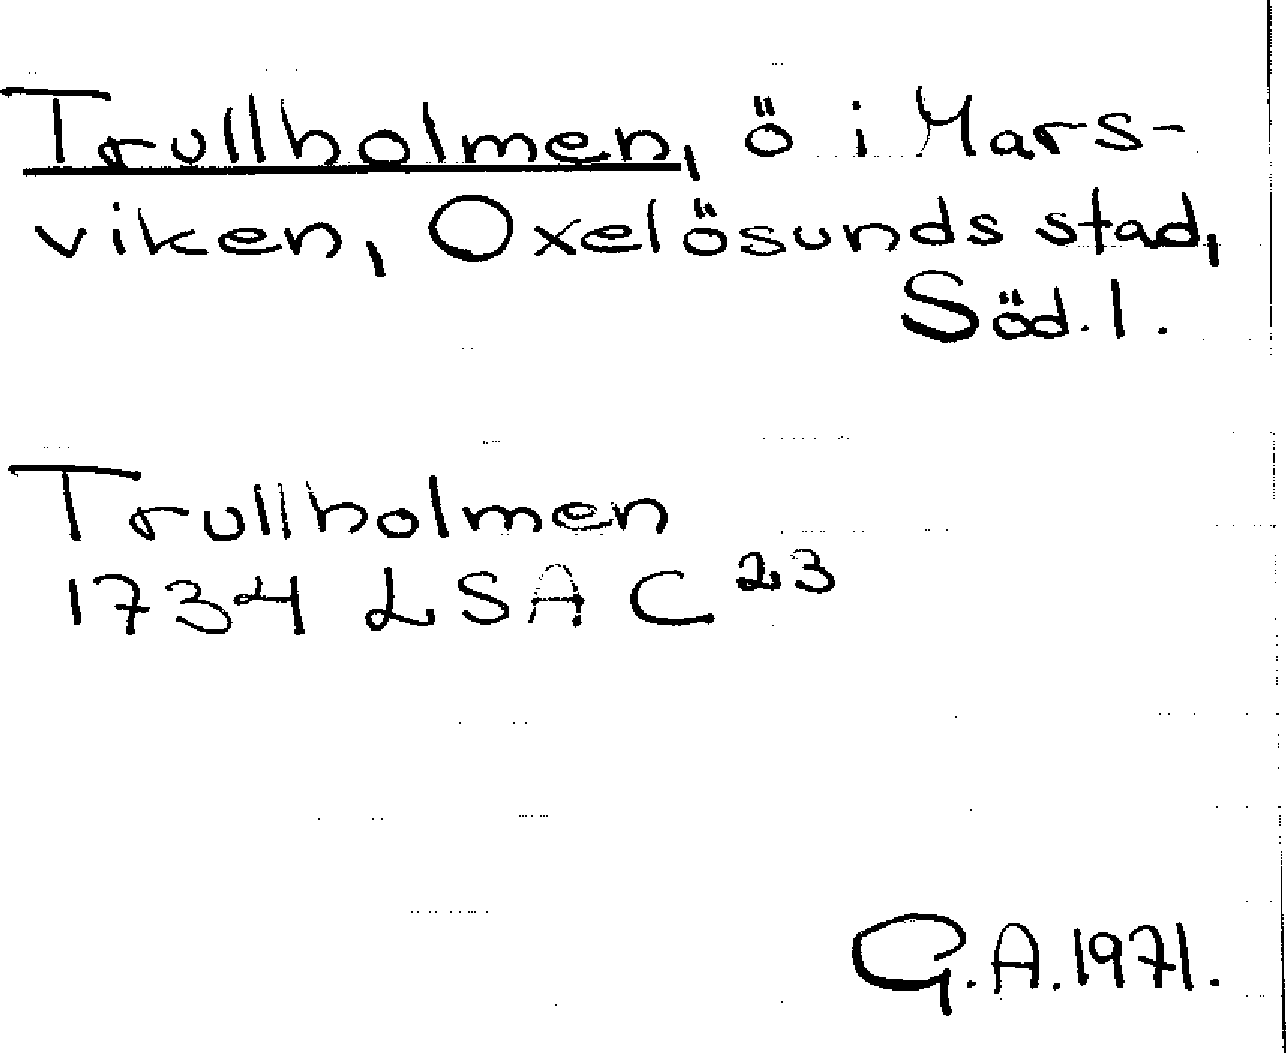 Trullholmen, ö i Mars-
viken, Oxelösunds stad,
Söd. l.
Trullholmen
1734 LSA C 23
G.A. 1971.